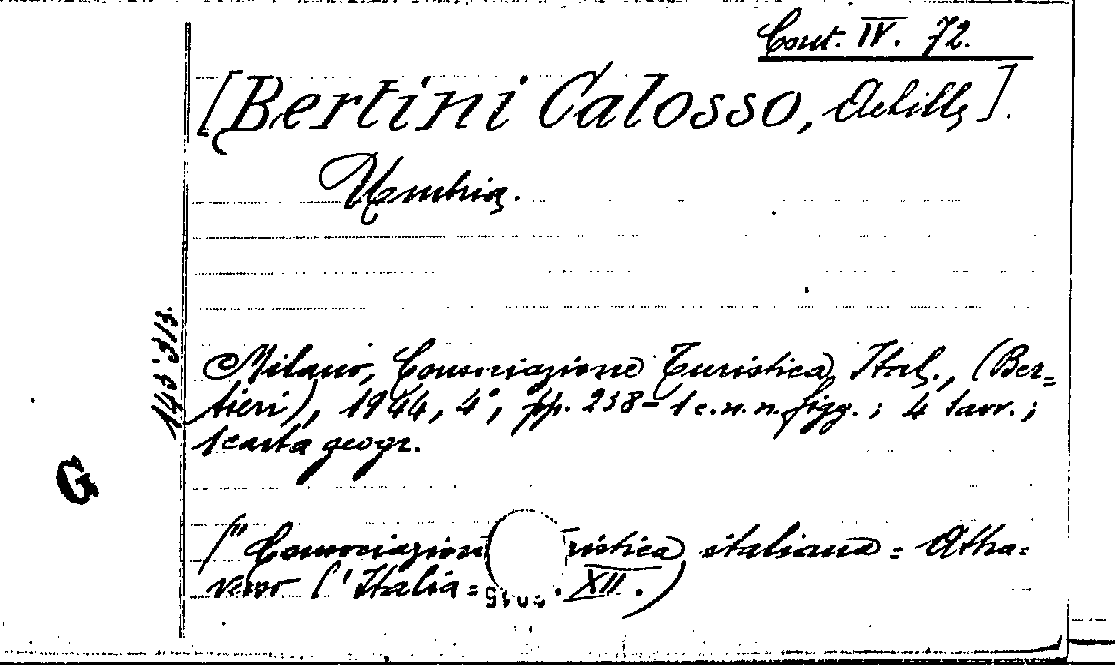 Cont. IV. 72.
[Bertini Calosso, Achille].
Umbria.
143313.
Milano, Consociazione Turistica Ital., (Ber=
tieri), 1944, 4°, pp. 238-1 c.n.n. figg.; 4 tavv.;
1 carta geogr.
G
("Consociazion ristica italiana = Attra=
verso l'Italia = . XII.)